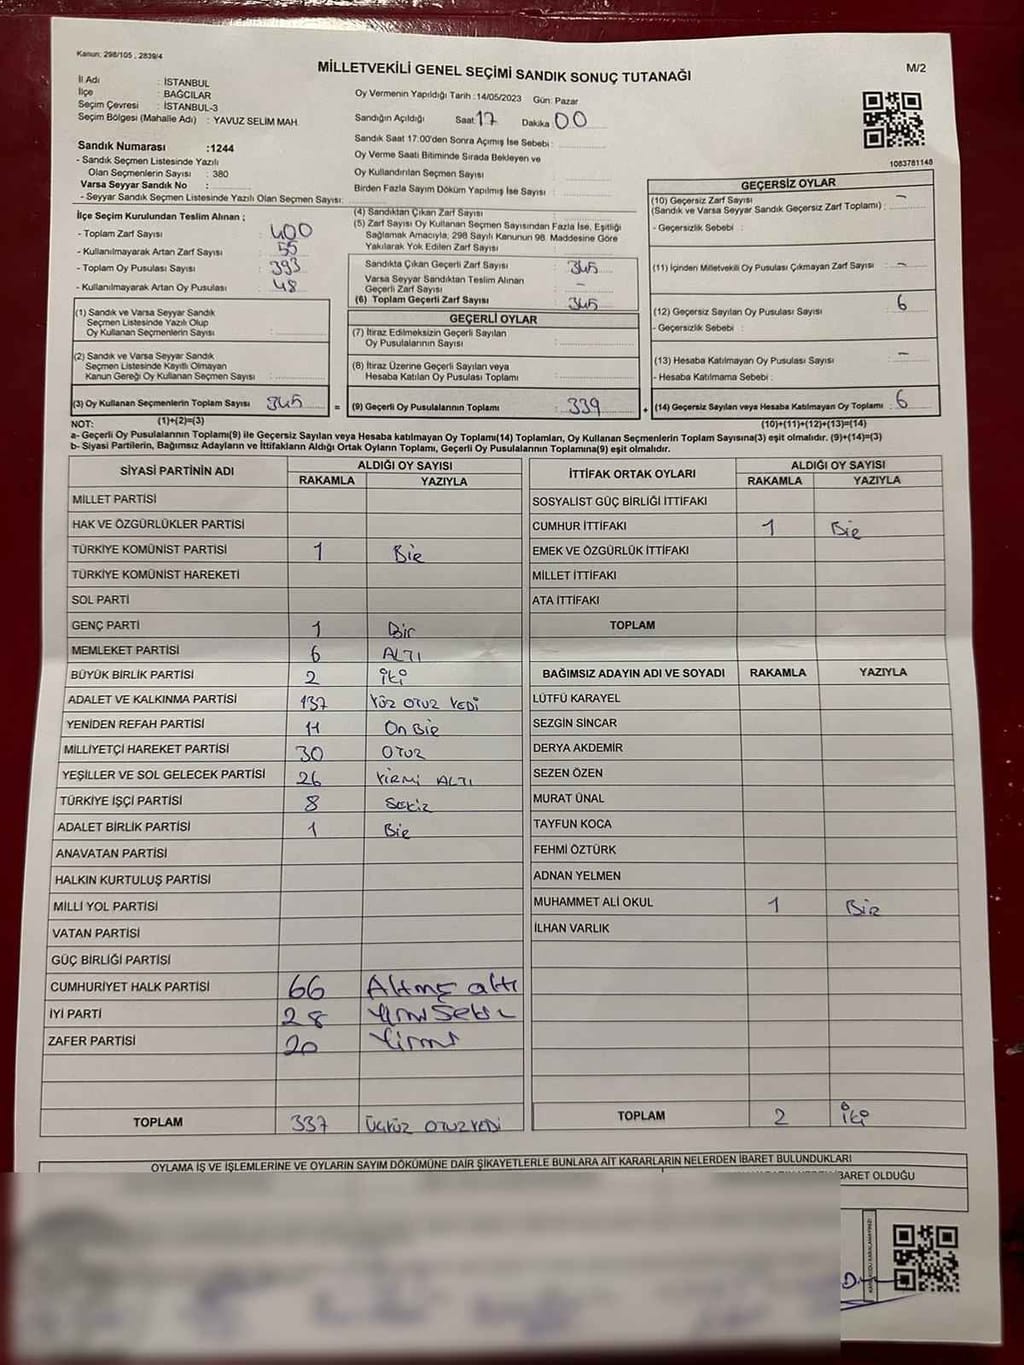 Kanun: 298/105 , 2839/4
MİLLETVEKİLİ GENEL SEÇİMİ SANDIK SONUÇ TUTANAĞI
M/2
İl Adı : İSTANBUL
İlçe : BAĞCILAR
Seçim Çevresi : İSTANBUL-3
Seçim Bölgesi (Mahalle Adı) : YAVUZ SELİM MAH.
Oy Vermenin Yapıldığı Tarih :14/05/2023 Gün: Pazar
Sandığın Açıldığı Saat 17 Dakika 00
Sandık Saat 17:00'den Sonra Açımış İse Sebebi :
Oy Verme Saati Bitiminde Sırada Bekleyen ve
Oy Kullandırılan Seçmen Sayısı :
Birden Fazla Sayım Döküm Yapılmış İse Sayısı :
1083781148
Sandık Numarası :1244
- Sandık Seçmen Listesinde Yazılı
Olan Seçmenlerin Sayısı : 380
Varsa Seyyar Sandık No :
- Seyyar Sandık Seçmen Listesinde Yazılı Olan Seçmen Sayısı:
İlçe Seçim Kurulundan Teslim Alınan ;
- Toplam Zarf Sayısı : 400
- Kullanılmayarak Artan Zarf Sayısı : 55
- Toplam Oy Pusulası Sayısı : 393
- Kullanılmayarak Artan Oy Pusulası : 48
(1) Sandık ve Varsa Seyyar Sandık
Seçmen Listesinde Yazılı Olup
Oy Kullanan Seçmenlerin Sayısı :
(2) Sandık ve Varsa Seyyar Sandık
Seçmen Listesinde Kayıtlı Olmayan
Kanun Gereği Oy Kullanan Seçmen Sayısı :
(3) Oy Kullanan Seçmenlerin Toplam Sayısı : 345
(1)+(2)=(3)
(4) Sandıktan Çıkan Zarf Sayısı :
(5) Zarf Sayısı Oy Kullanan Seçmen Sayısından Fazla İse, Eşitliği
Sağlamak Amacıyla, 298 Sayılı Kanunun 98. Maddesine Göre
Yakılarak Yok Edilen Zarf Sayısı :
Sandıkta Çıkan Geçerli Zarf Sayısı : 345
Varsa Seyyar Sandıktan Teslim Alınan
Geçerli Zarf Sayısı : -
(6) Toplam Geçerli Zarf Sayısı : 345
GEÇERLİ OYLAR
(7) İtiraz Edilmeksizin Geçerli Sayılan
Oy Pusulalarının Sayısı :
(8) İtiraz Üzerine Geçerli Sayılan veya
Hesaba Katılan Oy Pusulası Toplamı :
= (9) Geçerli Oy Pusulalarının Toplamı : 339
GEÇERSİZ OYLAR
(10) Geçersiz Zarf Sayısı
(Sandık ve Varsa Seyyar Sandık Geçersiz Zarf Toplamı) : -
- Geçersizlik Sebebi :
(11) İçinden Milletvekili Oy Pusulası Çıkmayan Zarf Sayısı : -
(12) Geçersiz Sayılan Oy Pusulası Sayısı : 6
- Geçersizlik Sebebi :
(13) Hesaba Katılmayan Oy Pusulası Sayısı : -
- Hesaba Katılmama Sebebi :
+ (14) Geçersiz Sayılan veya Hesaba Katılmayan Oy Toplamı : 6
(10)+(11)+(12)+(13)=(14)
NOT:
a- Geçerli Oy Pusulalarının Toplamı(9) ile Geçersiz Sayılan veya Hesaba katılmayan Oy Toplamı(14) Toplamları, Oy Kullanan Seçmenlerin Toplam Sayısına(3) eşit olmalıdır. (9)+(14)=(3)
b- Siyasi Partilerin, Bağımsız Adayların ve İttifakların Aldığı Ortak Oyların Toplamı, Geçerli Oy Pusulalarının Toplamına(9) eşit olmalıdır.
SİYASİ PARTİNİN ADI ALDIĞI OY SAYISI
RAKAMLA YAZIYLA
MİLLET PARTİSİ
HAK VE ÖZGÜRLÜKLER PARTİSİ
TÜRKİYE KOMÜNİST PARTİSİ 1 Bir
TÜRKİYE KOMÜNİST HAREKETİ
SOL PARTİ
GENÇ PARTİ 1 Bir
MEMLEKET PARTİSİ 6 ALTI
BÜYÜK BİRLİK PARTİSİ 2 iki
ADALET VE KALKINMA PARTİSİ 137 YÜZ OTUZ YEDİ
YENİDEN REFAH PARTİSİ 11 On Bir
MİLLİYETÇİ HAREKET PARTİSİ 30 OTUZ
YEŞİLLER VE SOL GELECEK PARTİSİ 26 YİRMİ ALTI
TÜRKİYE İŞÇİ PARTİSİ 8 Sekiz
ADALET BİRLİK PARTİSİ 1 Bir
ANAVATAN PARTİSİ
HALKIN KURTULUŞ PARTİSİ
MİLLİ YOL PARTİSİ
VATAN PARTİSİ
GÜÇ BİRLİĞİ PARTİSİ
CUMHURİYET HALK PARTİSİ 66 Altmş altı
İYİ PARTİ 28
ZAFER PARTİSİ 20 Yirmi
TOPLAM 337 ÜÇYÜZ OTUZYEDİ
İTTİFAK ORTAK OYLARI ALDIĞI OY SAYISI
RAKAMLA YAZIYLA
SOSYALİST GÜÇ BİRLİĞİ İTTİFAKI
CUMHUR İTTİFAKI 1 Bir
EMEK VE ÖZGÜRLÜK İTTİFAKI
MİLLET İTTİFAKI
ATA İTTİFAKI
TOPLAM
BAĞIMSIZ ADAYIN ADI VE SOYADI RAKAMLA YAZIYLA
LÜTFÜ KARAYEL
SEZGİN SİNCAR
DERYA AKDEMİR
SEZEN ÖZEN
MURAT ÜNAL
TAYFUN KOCA
FEHMİ ÖZTÜRK
ADNAN YELMEN
MUHAMMET ALİ OKUL 1 Bir
İLHAN VARLIK
TOPLAM 2 iki
OYLAMA İŞ VE İŞLEMLERİNE VE OYLARIN SAYIM DÖKÜMÜNE DAİR ŞİKAYETLERLE BUNLARA AİT KARARLARIN NELERDEN İBARET BULUNDUKLARI
İBARET OLDUĞU